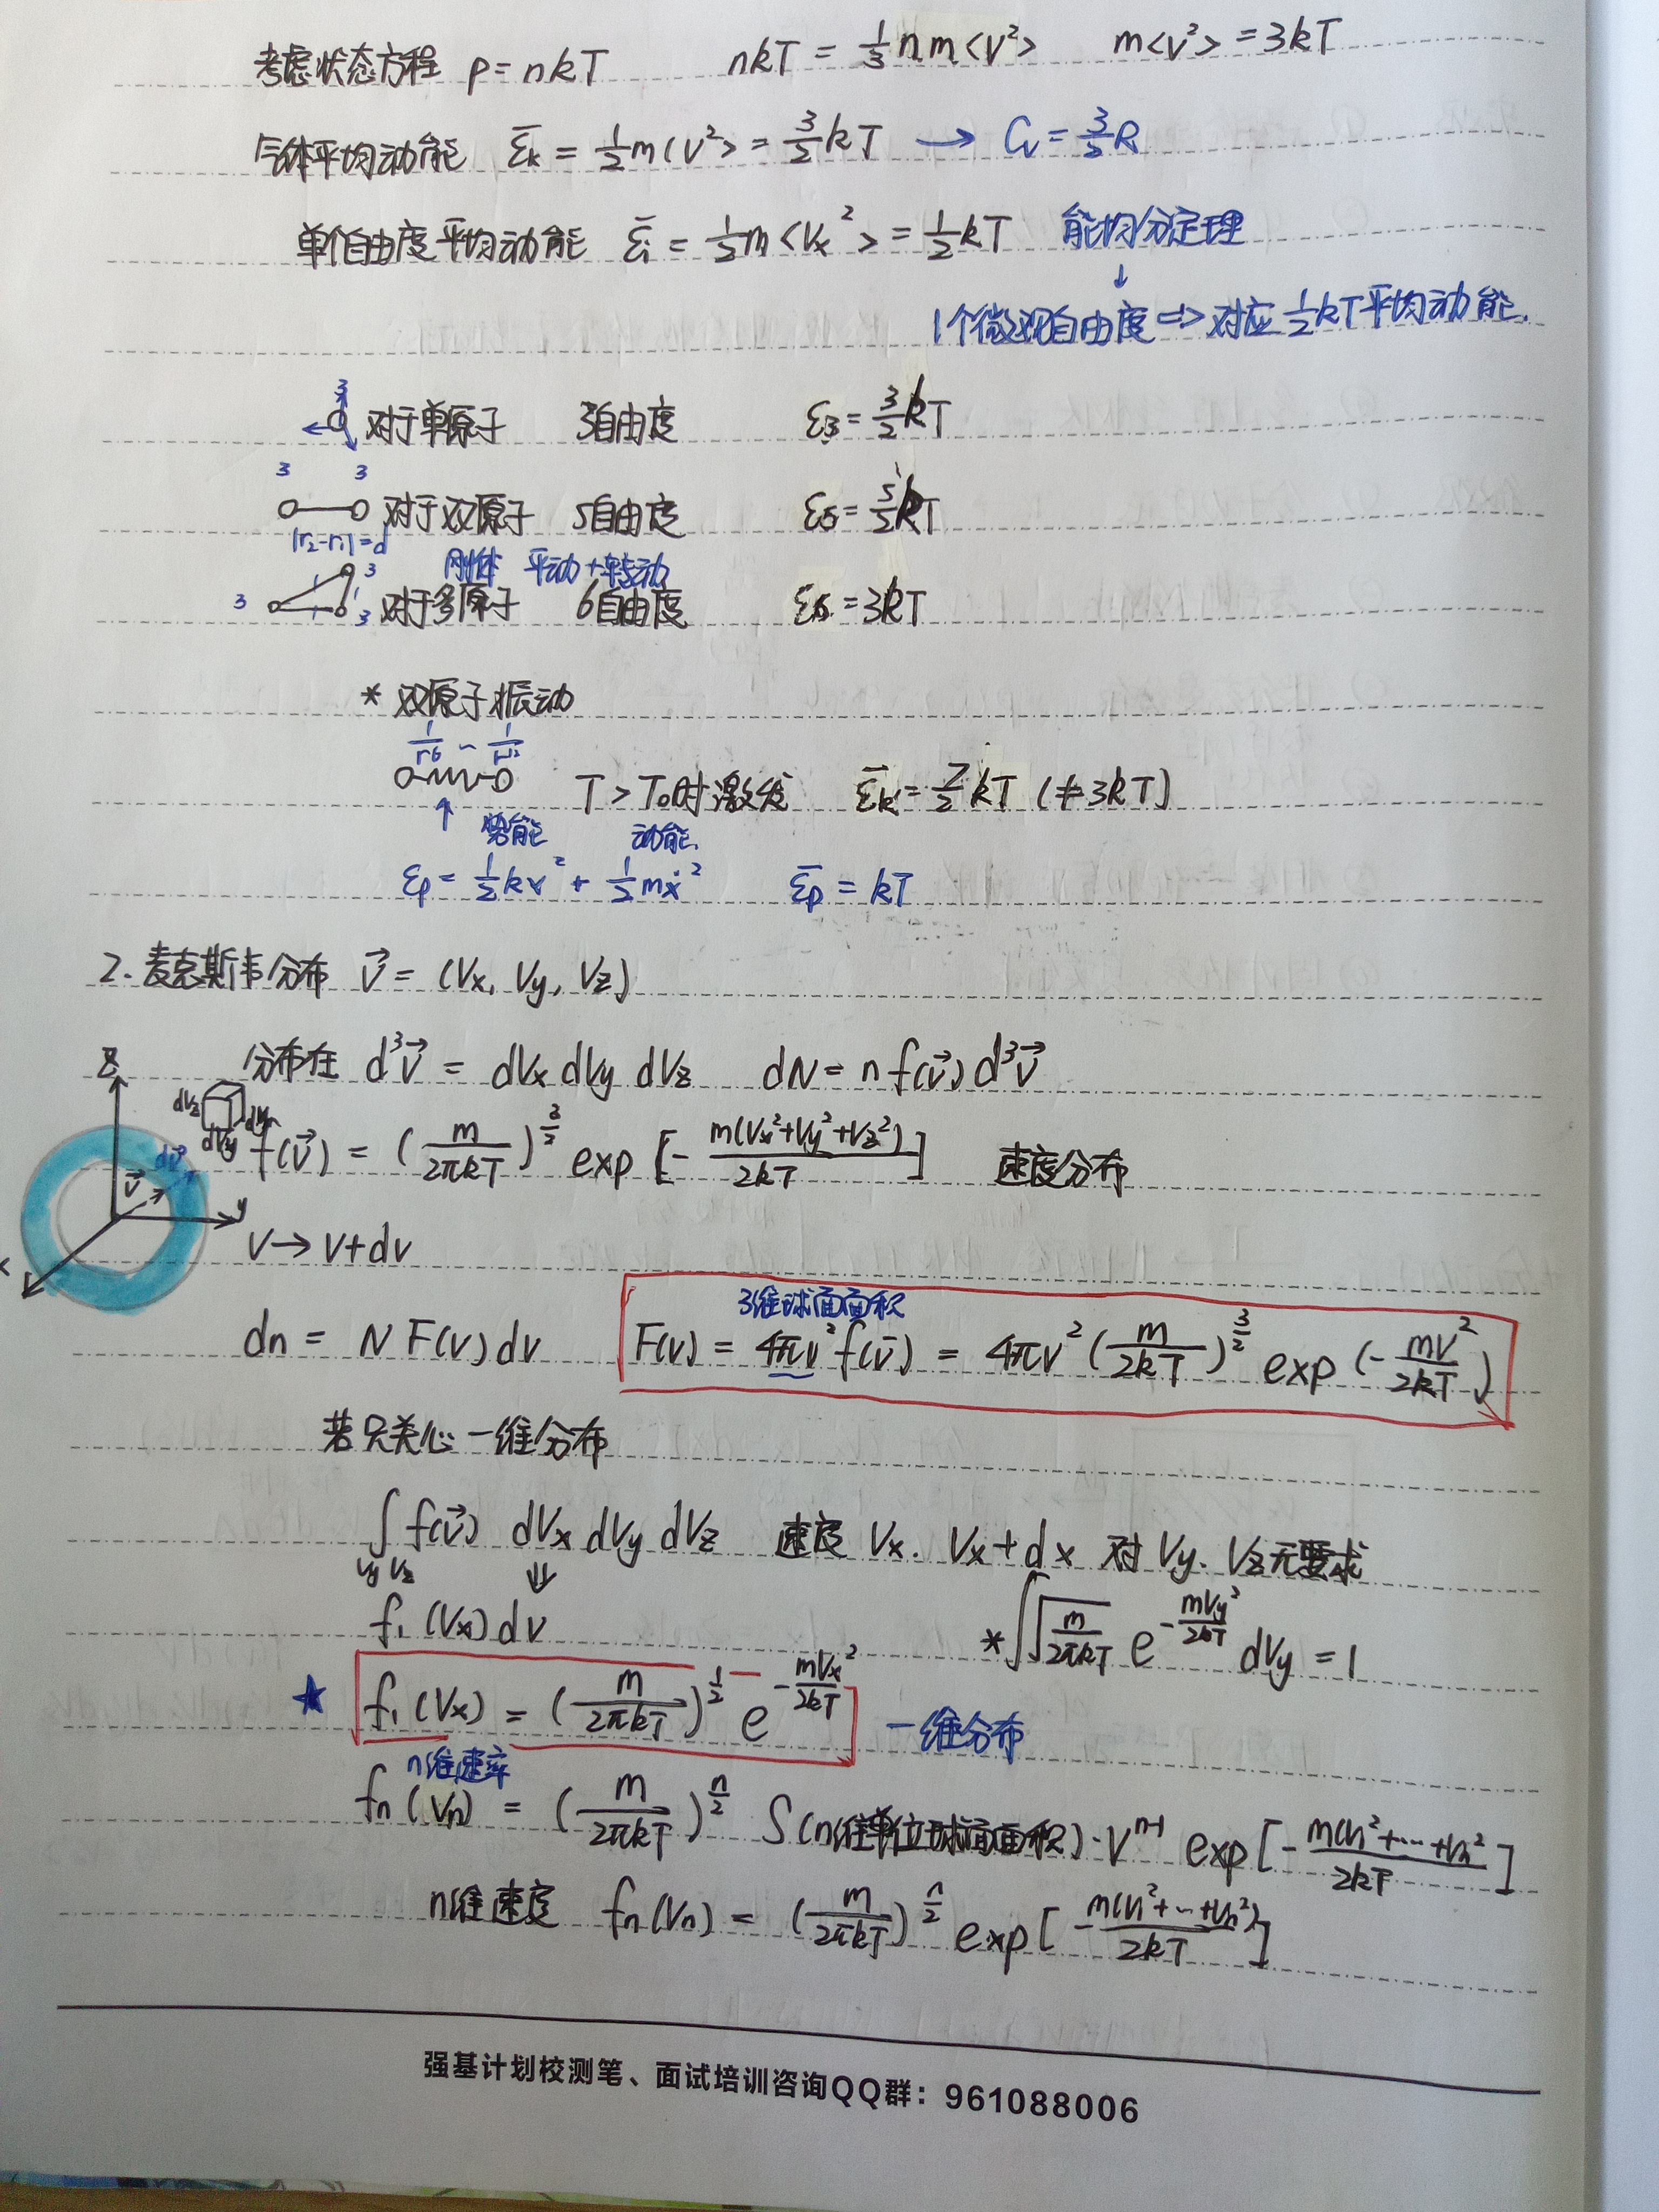 考虑状态方程 p=nkT nkT = 1/3 nm<v²> m<v²> = 3kT
气体平均动能 ε̄k = 1/2 m<v²> = 3/2 kT → Cv = 3/2 R
单个自由度平均动能 ε̄i = 1/2 m<Vx²> = 1/2 kT 能均分定理
↓
1个微观自由度 => 对应 1/2 kT 平均动能.
3
对于单原子 3自由度 ε3 = 3/2 kT
3 3
对于双原子 5自由度 ε5 = 5/2 kT
|r2-r1|=d
刚体 平动+转动
3 1 3 1 1 3 对于多原子 6自由度 ε6 = 3kT
* 双原子振动
1/r⁶ ~ 1/r¹²
T > T0时激发 ε̄k = 7/2 kT (≠3kT)
↑ 势能 动能.
εp = 1/2 kx² + 1/2 mẋ² ε̄p = kT
2. 麦克斯韦分布 v⃗ = (Vx, Vy, Vz)
分布在 d³v⃗ = dVx dVy dVz dN = n f(v⃗) d³v⃗
z
dVz dVy
f(v⃗) = (m/2πkT)^(3/2) exp[-m(Vx²+Vy²+Vz²)/2kT] 速度分布
v⃗ dv⃗ y x
V→V+dv
3维球面面积
dn = N F(v) dv F(v) = 4πv² f(v⃗) = 4πv² (m/2kT)^(3/2) exp(-mv²/2kT)
若只关心一维分布
∫ f(v⃗) dVx dVy dVz 速度 Vx. Vx+dx 对 Vy. Vz无要求
Vy Vz ⇓
f1(Vx) dv *∫√(m/2πkT) e^(-mVy²/2kT) dVy = 1
★ f1(Vx) = (m/2πkT)^(1/2) e^(-mVx²/2kT) 一维分布
n维速率
fn(Vn) = (m/2πkT)^(n/2) S(n维单位球面面积)·V^(n-1) exp[-m(V1²+…+Vn²)/2kT]
n维速度 fn(Vn) = (m/2πkT)^(n/2) exp[-m(V1²+…+Vn²)/2kT]
强基计划校测笔、面试培训咨询QQ群：961088006